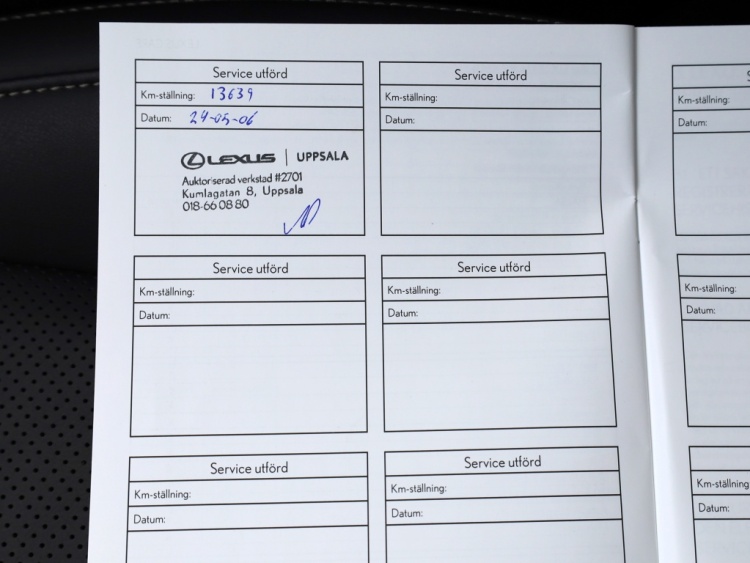 Service utförd
Km-ställning: 13639
Datum: 24-05-06
LEXUS | UPPSALA
Auktoriserad verkstad #2701
Kumlagatan 8, Uppsala
018-66 08 80
Service utförd
Km-ställning:
Datum:
Km-ställning:
Datum:
Service utförd
Km-ställning:
Datum:
Service utförd
Km-ställning:
Datum:
Km-ställning:
Datum:
Service utförd
Km-ställning:
Datum:
Service utförd
Km-ställning:
Datum:
Km-ställning:
Datum: